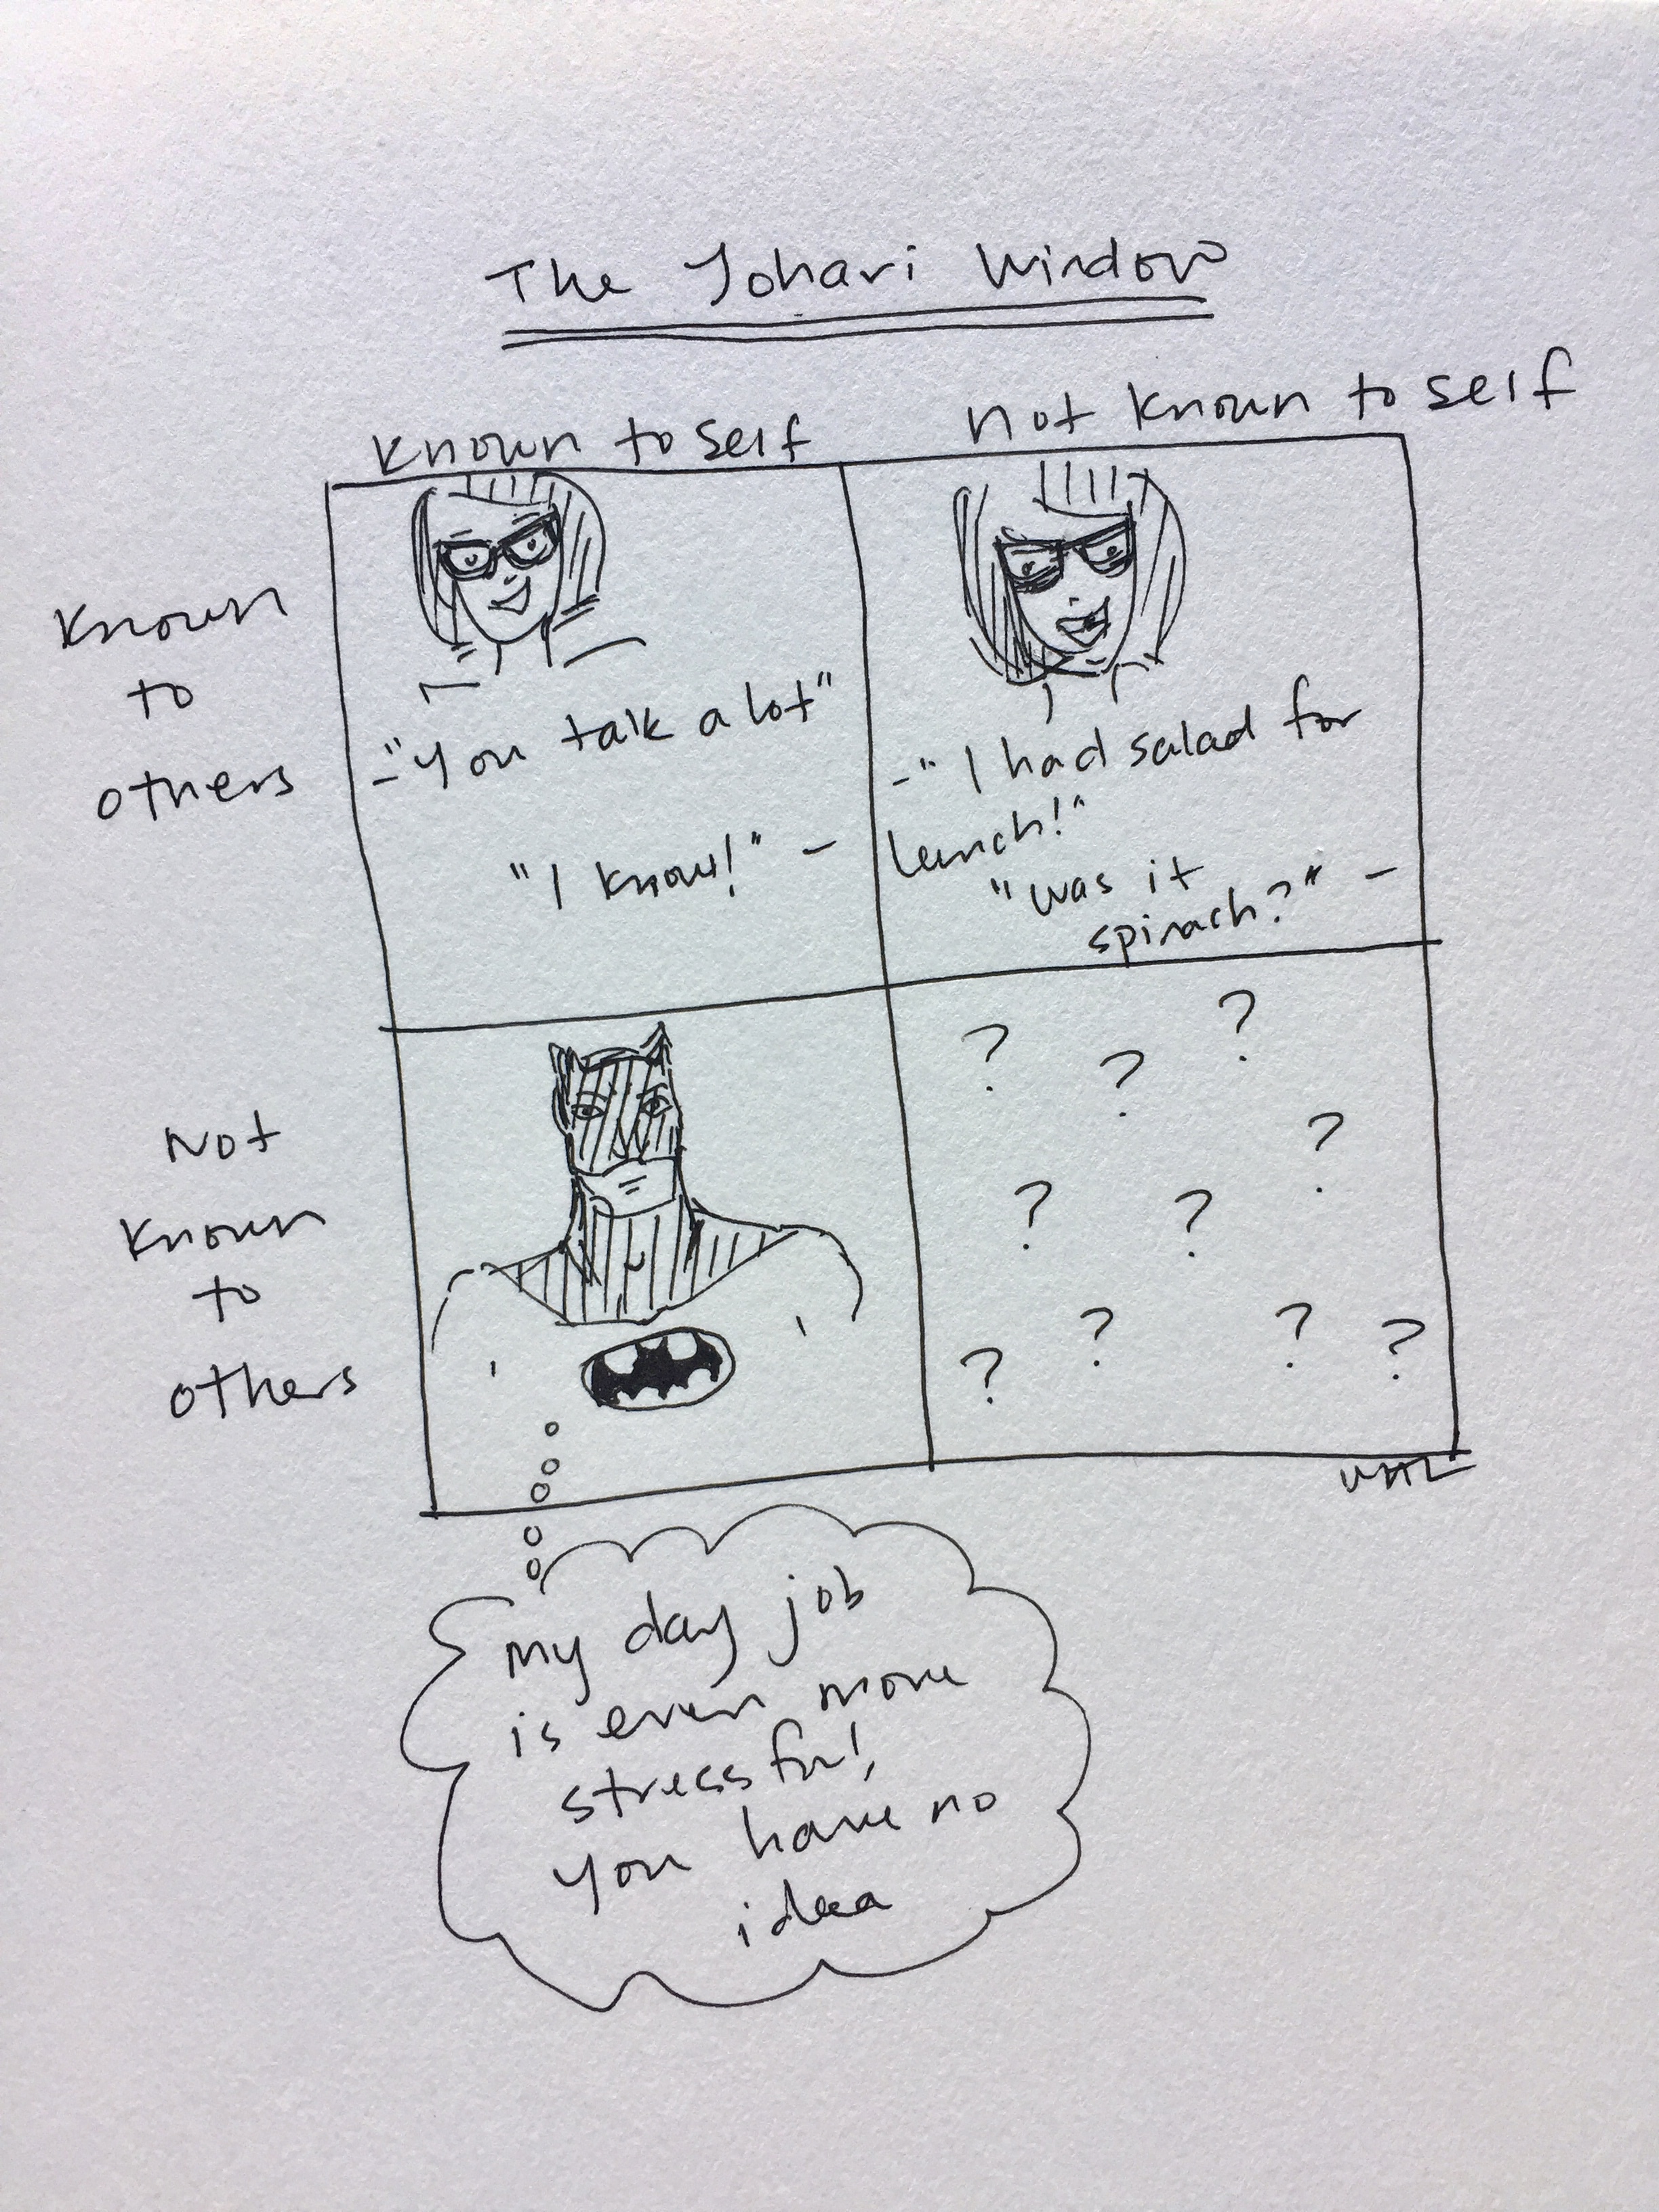 The Johari Window
Known to self
not known to self
Known
to
others
-"You talk a lot"
"I know!" -
-"I had salad for
lunch!"
"was it
spinach?" -
Not
Known
to
others
? ? ?
? ? ?
? ? ? ?
my day job
is even more
stressful,
you have no
idea